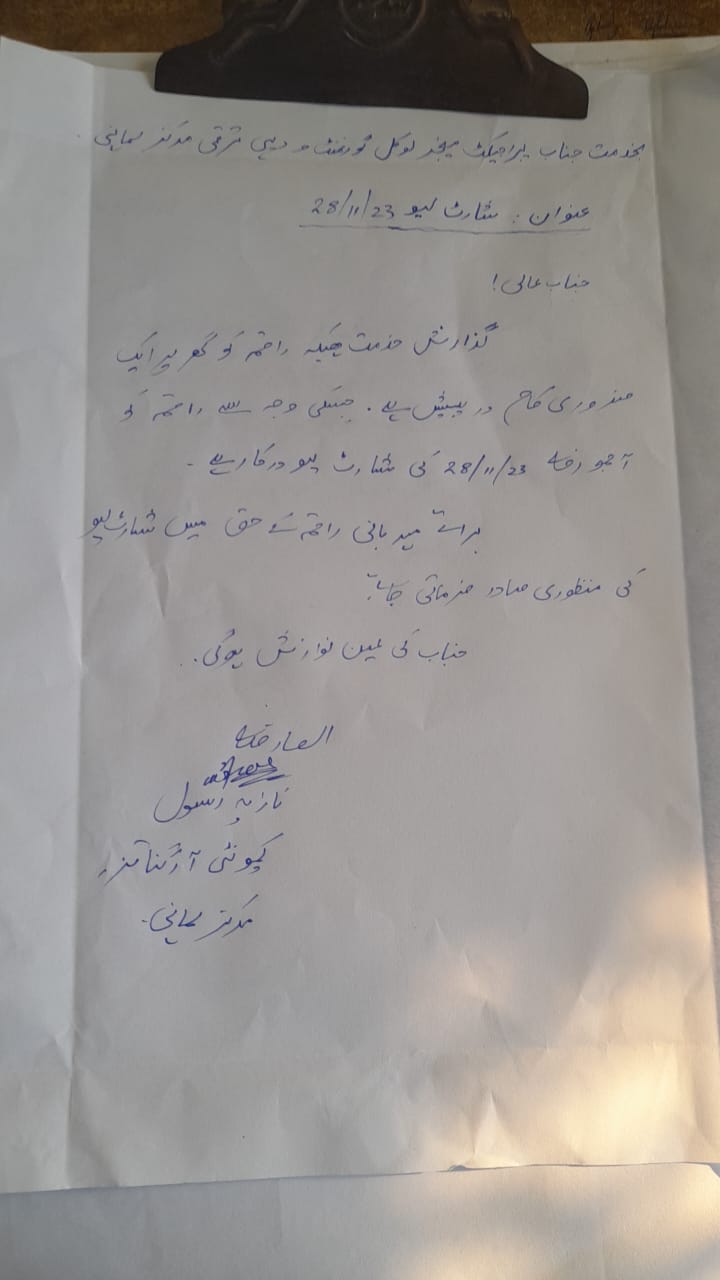 بخدمت جناب پراجیکٹ مینجر لوکل گورنمنٹ و دیہی ترقی مرکز سماہنی
عنوان: شارٹ لیو 28/11/23
جناب عالی!
گذارش خدمت ہیکہ راقمہ کو گھر پر ایک
ضروری کام در پیش ہے۔ جسکی وجہ سے راقمہ کو
آجمورخہ 28/11/23 کی شارٹ لیو درکار ہے۔
برائے مہربانی راقمہ کے حق میں شارٹ لیو
کی منظوری صادر فرمائی جائے۔
جناب کی عین نوازش ہوگی۔
العارضہ
نازیہ رسول
کمیونٹی آرگنائزر
مرکز سماہنی۔